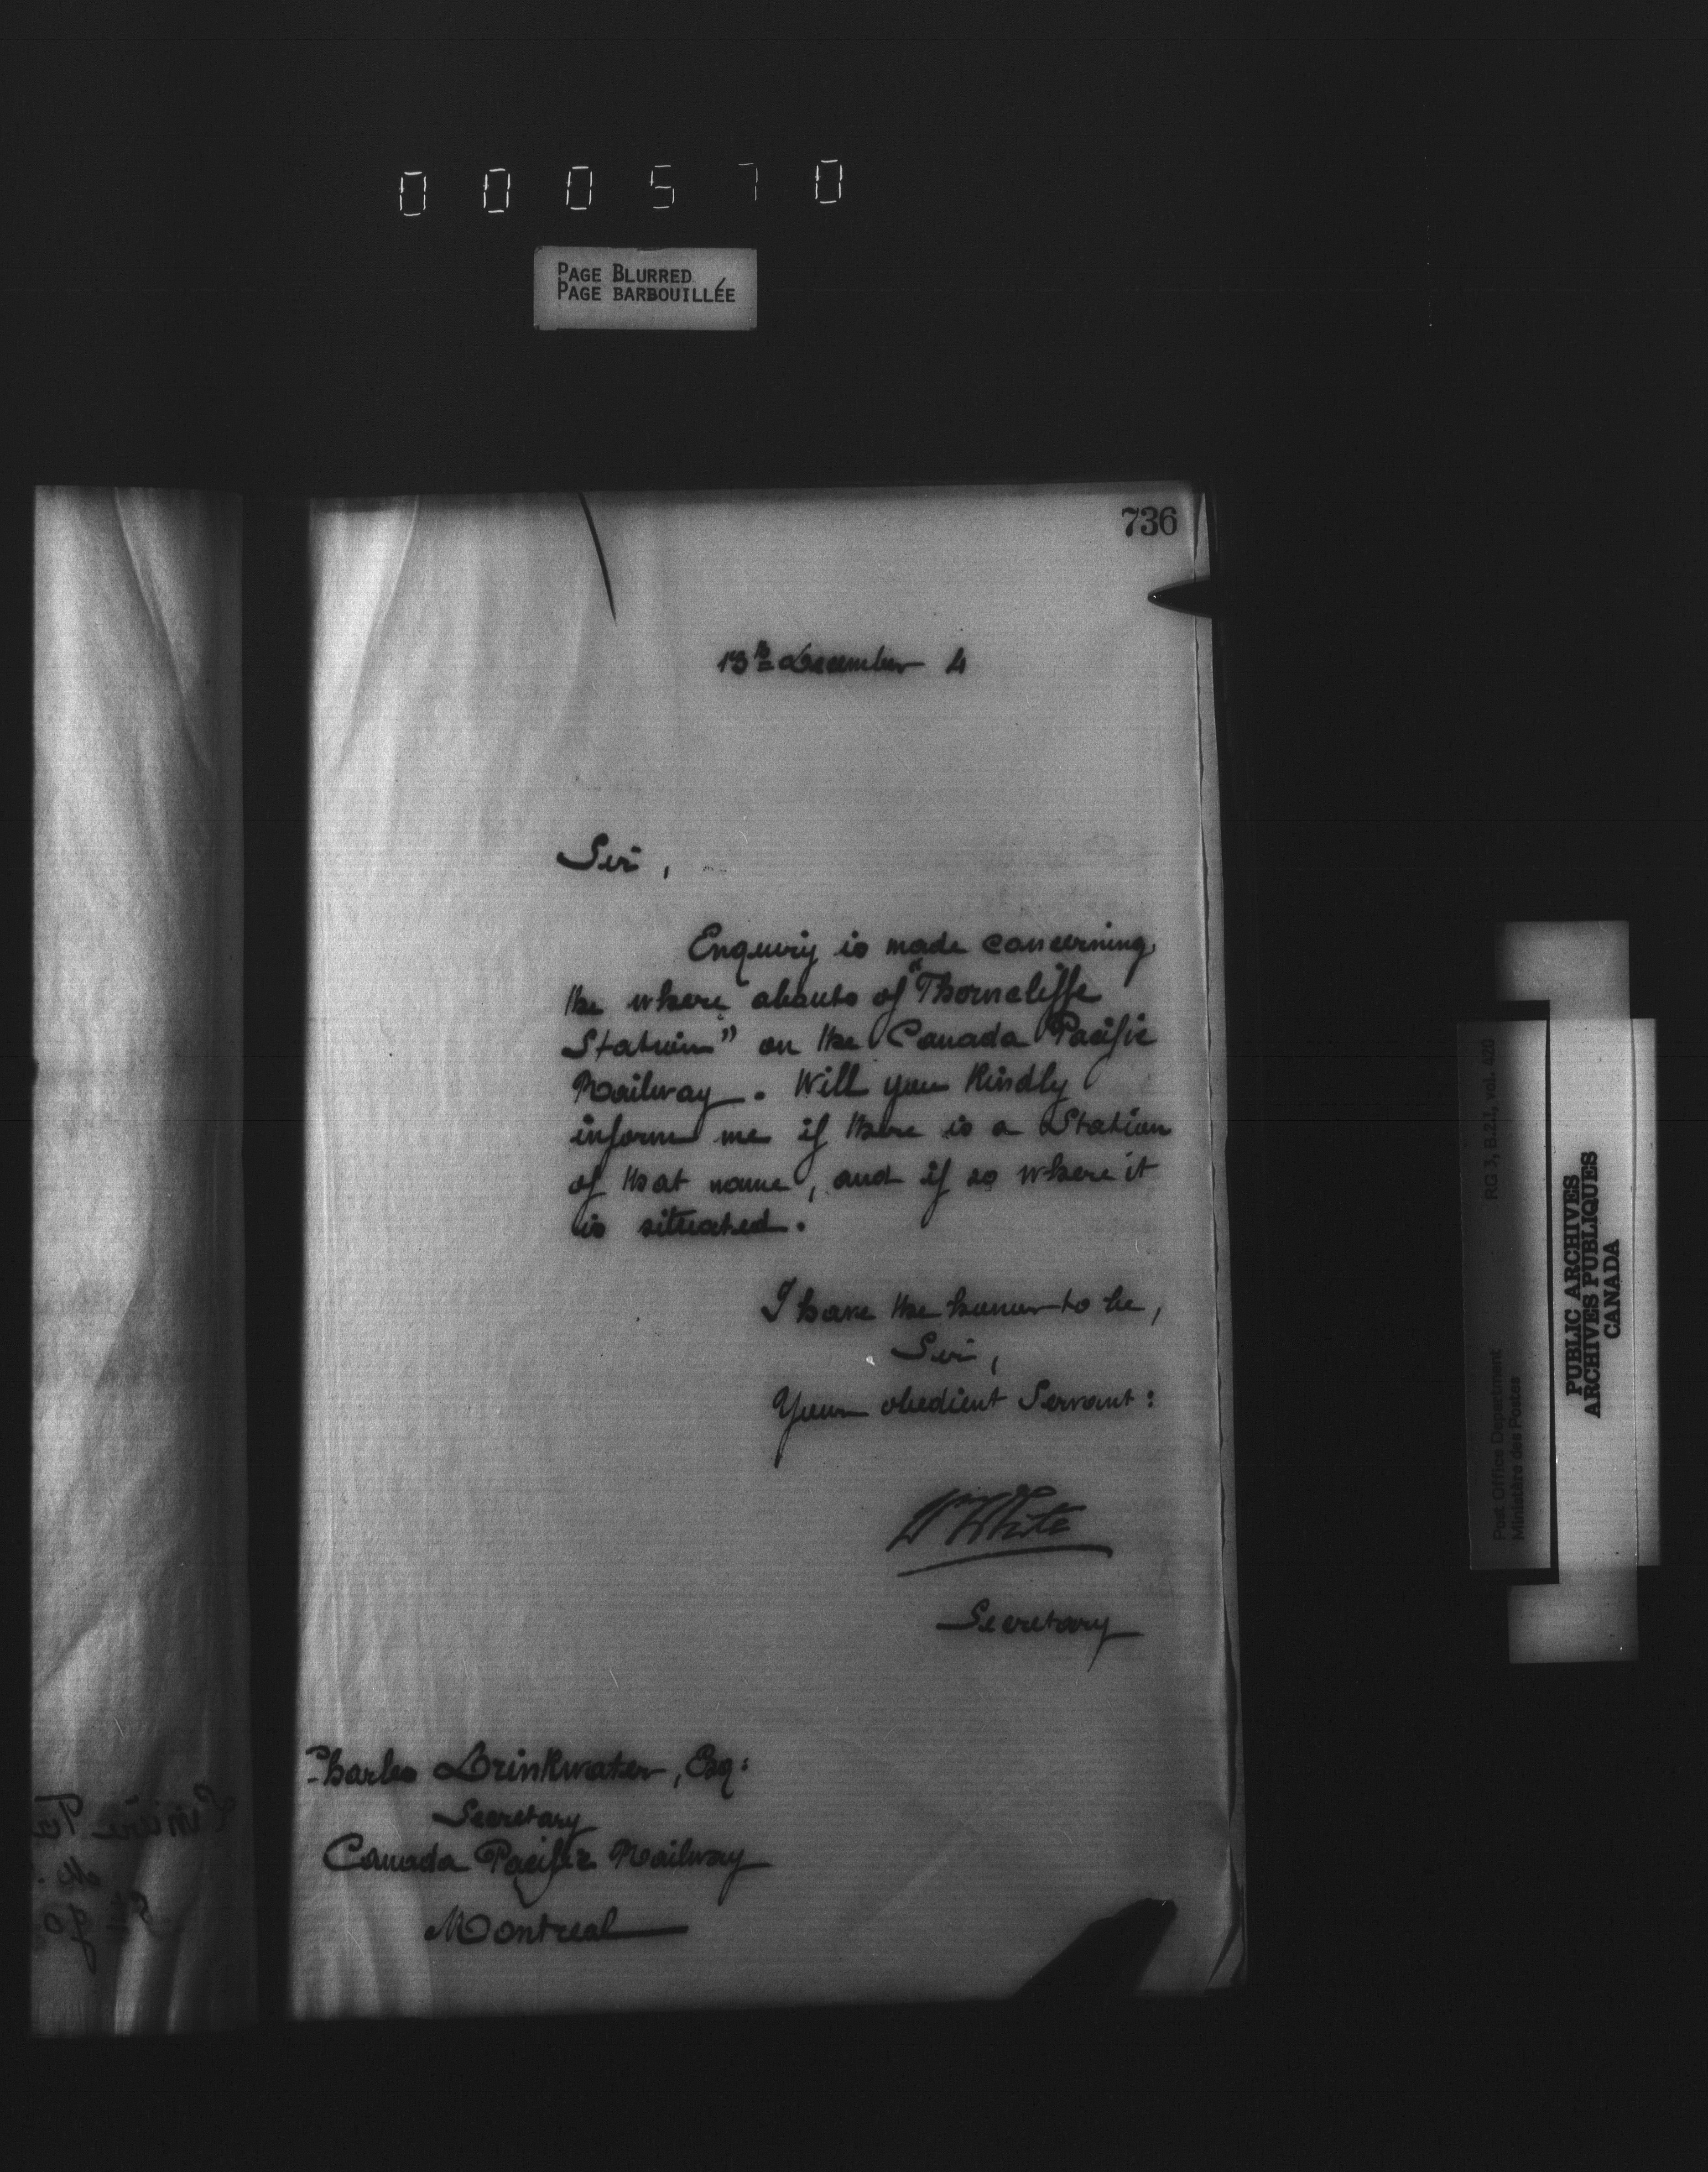 000570
PAGE BLURRED
PAGE BARBOUILLÉE
736
13th December 4
Sir,
Enquiry is made concerning
the where abouts of "Thorncliffe
Station" on the Canada Pacific
Railway. Will you kindly
inform me if there is a Station
of that name, and if so where it
is situated.
I have the honor to be,
Sir,
Your obedient Servant:
W White
Secretary
Charles Drinkwater, Esq:
Secretary
Canada Pacific Railway
Montreal
RG 3, B.2.1, vol. 420
Post Office Department
Ministère des Postes
PUBLIC ARCHIVES
ARCHIVES PUBLIQUES
CANADA